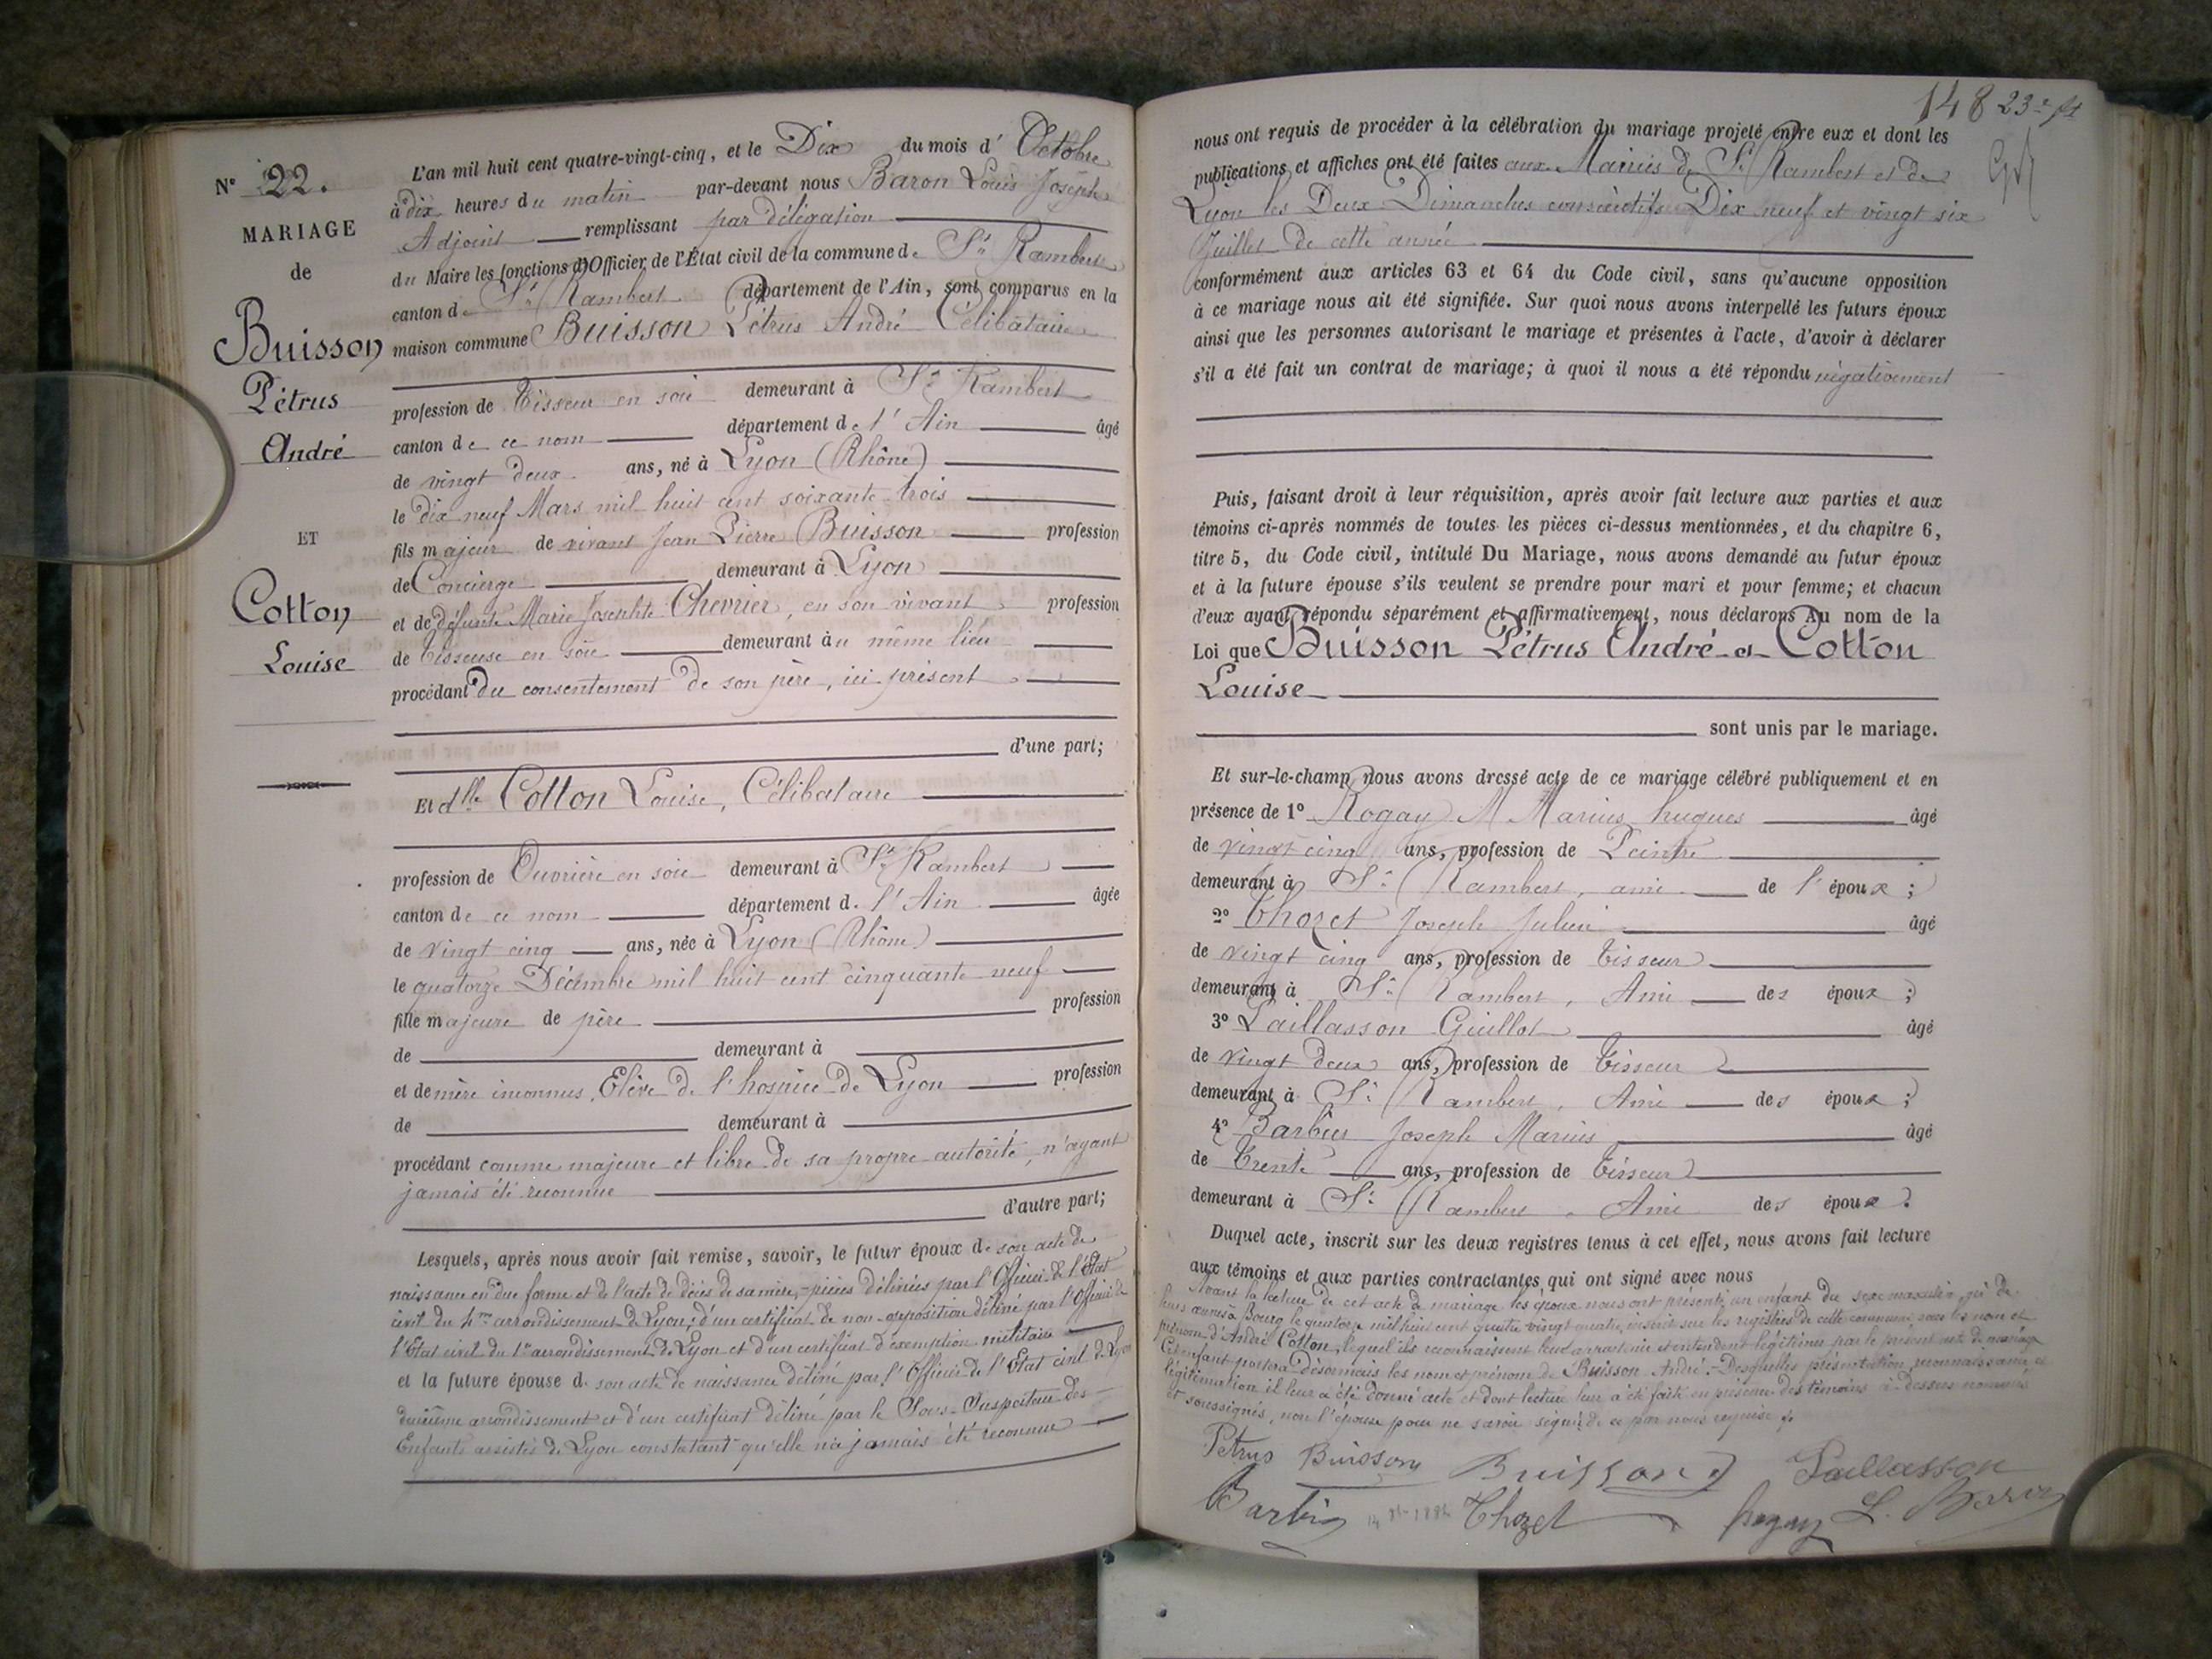 N° 22.
MARIAGE
de
Buisson
Pétrus
André
ET
Cotton
Louise
L'an mil huit cent quatre-vingt-cinq, et le Dix du mois d' Octobre
à dix heures du matin par-devant nous Baron Louis Joseph
Adjoint remplissant par délégation
du Maire les fonctions d'Officier de l'État civil de la commune de St Rambert
canton de St Rambert département de l'Ain, sont comparus en la
maison commune Buisson Pétrus André Célibataire
profession de Tisseur en soie demeurant à St Rambert
canton de ce nom département de l'Ain âgé
de vingt deux ans, né à Lyon (Rhône)
le dix neuf Mars mil huit cent soixante trois
fils majeur de vivant Jean Pierre Buisson profession
de Concierge demeurant à Lyon
et de défunte Marie Josephte Chevrier, en son vivant profession
de Tisseuse en soie demeurant au même lieu
procédant du consentement de son père, ici présent
d'une part;
Et dlle Cotton Louise, Célibataire
profession de Ouvrière en soie demeurant à St Rambert
canton de ce nom département d. l'Ain âgée
de vingt cinq ans, née à Lyon (Rhône)
le quatorze Décembre mil huit cent cinquante neuf
fille majeure de père profession
de demeurant à
et de mère inconnus, Elève de l'hospice de Lyon profession
de demeurant à
procédant comme majeure et libre de sa propre autorité, n'ayant
jamais été reconnue
d'autre part;
Lesquels, après nous avoir fait remise, savoir, le futur époux de son acte de
naissance en due forme et de l'acte de décès de sa mère, pièces délivrées par l'Officier de l'État
civil du 4me arrondissement de Lyon; d'un certificat de non-opposition délivré par l'Officier de
l'État civil du 1er arrondissement de Lyon et d'un certificat d'exemption militaire
et la future épouse de son acte de naissance délivré par l'Officier de l'État civil de Lyon
deuxième arrondissement et d'un certificat délivré par le Sous-Inspecteur des
Enfants assistés de Lyon constatant qu'elle n'a jamais été reconnue
148 23e ft
nous ont requis de procéder à la célébration du mariage projeté entre eux et dont les
publications et affiches ont été faites aux Mairies de St Rambert et de
Lyon les Deux Dimanches consécutifs Dix neuf et vingt six
Juillet de cette année
conformément aux articles 63 et 64 du Code civil, sans qu'aucune opposition
à ce mariage nous ait été signifiée. Sur quoi nous avons interpellé les futurs époux
ainsi que les personnes autorisant le mariage et présentes à l'acte, d'avoir à déclarer
s'il a été fait un contrat de mariage; à quoi il nous a été répondu négativement
Puis, faisant droit à leur réquisition, après avoir fait lecture aux parties et aux
témoins ci-après nommés de toutes les pièces ci-dessus mentionnées, et du chapitre 6,
titre 5, du Code civil, intitulé Du Mariage, nous avons demandé au futur époux
et à la future épouse s'ils veulent se prendre pour mari et pour femme; et chacun
d'eux ayant répondu séparément et affirmativement, nous déclarons Au nom de la
Loi que Buisson Pétrus André et Cotton
Louise
sont unis par le mariage.
Et sur-le-champ nous avons dressé acte de ce mariage célébré publiquement et en
présence de 1° Rogay M Marius hugues âgé
de vingt cinq ans, profession de Peintre
demeurant à St Rambert, ami de l'époux;
2° Thozet Joseph Julien âgé
de vingt cinq ans, profession de Tisseur
demeurant à St Rambert, Ami des époux;
3° Paillasson Guillot âgé
de vingt deux ans, profession de Tisseur
demeurant à St Rambert, Ami des époux;
4° Barbier Joseph Marius âgé
de Trente ans, profession de Tisseur
demeurant à St Rambert, Ami des époux.
Duquel acte, inscrit sur les deux registres tenus à cet effet, nous avons fait lecture
aux témoins et aux parties contractantes, qui ont signé avec nous
Avant la lecture de cet acte de mariage les époux nous ont présenté un enfant du sexe masculin, né de
leurs œuvres à Bourg le quatorze mil huit cent quatre vingt quatre, inscrit sur les registres de cette commune, sous les nom et
prénom d'André Cotton, lequel ils reconnaissent leur appartenir et entendent légitimer par le présent acte de mariage
Cet enfant portera désormais les nom et prénom de Buisson André. Desquelles présentation, reconnaissance et
légitimation il leur a été donné acte et dont lecture leur a été faite en présence des témoins ci-dessus nommés
et soussignés, non l'épouse pour ne savoir signer de ce par nous requise
Petrus Buisson Buisson Paillasson
Barbier Thozet Rogay L. Baron